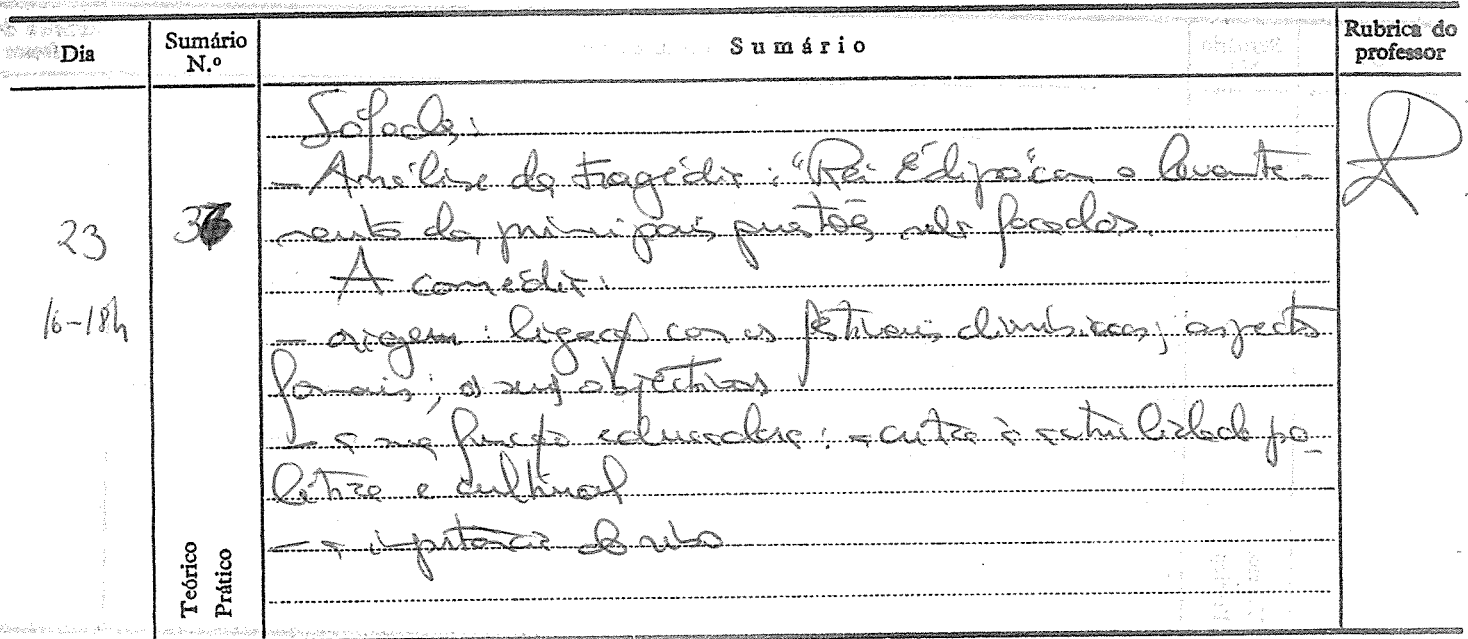 Dia
Sumário N.º
Sumário
Rubrica do professor
23
16-18h
3
Sófocles:
- Análise da tragédia: "Rei Édipo" com o levanta-
mento das principais questões nele focados.
A comédia:
- origem: ligação com os festivais dionisíacos; aspectos
formais; os seus objectivos
- a sua função educadora: a crítica à actualidade po-
lítica e cultural
- a importância do riso
Teórico
Prático